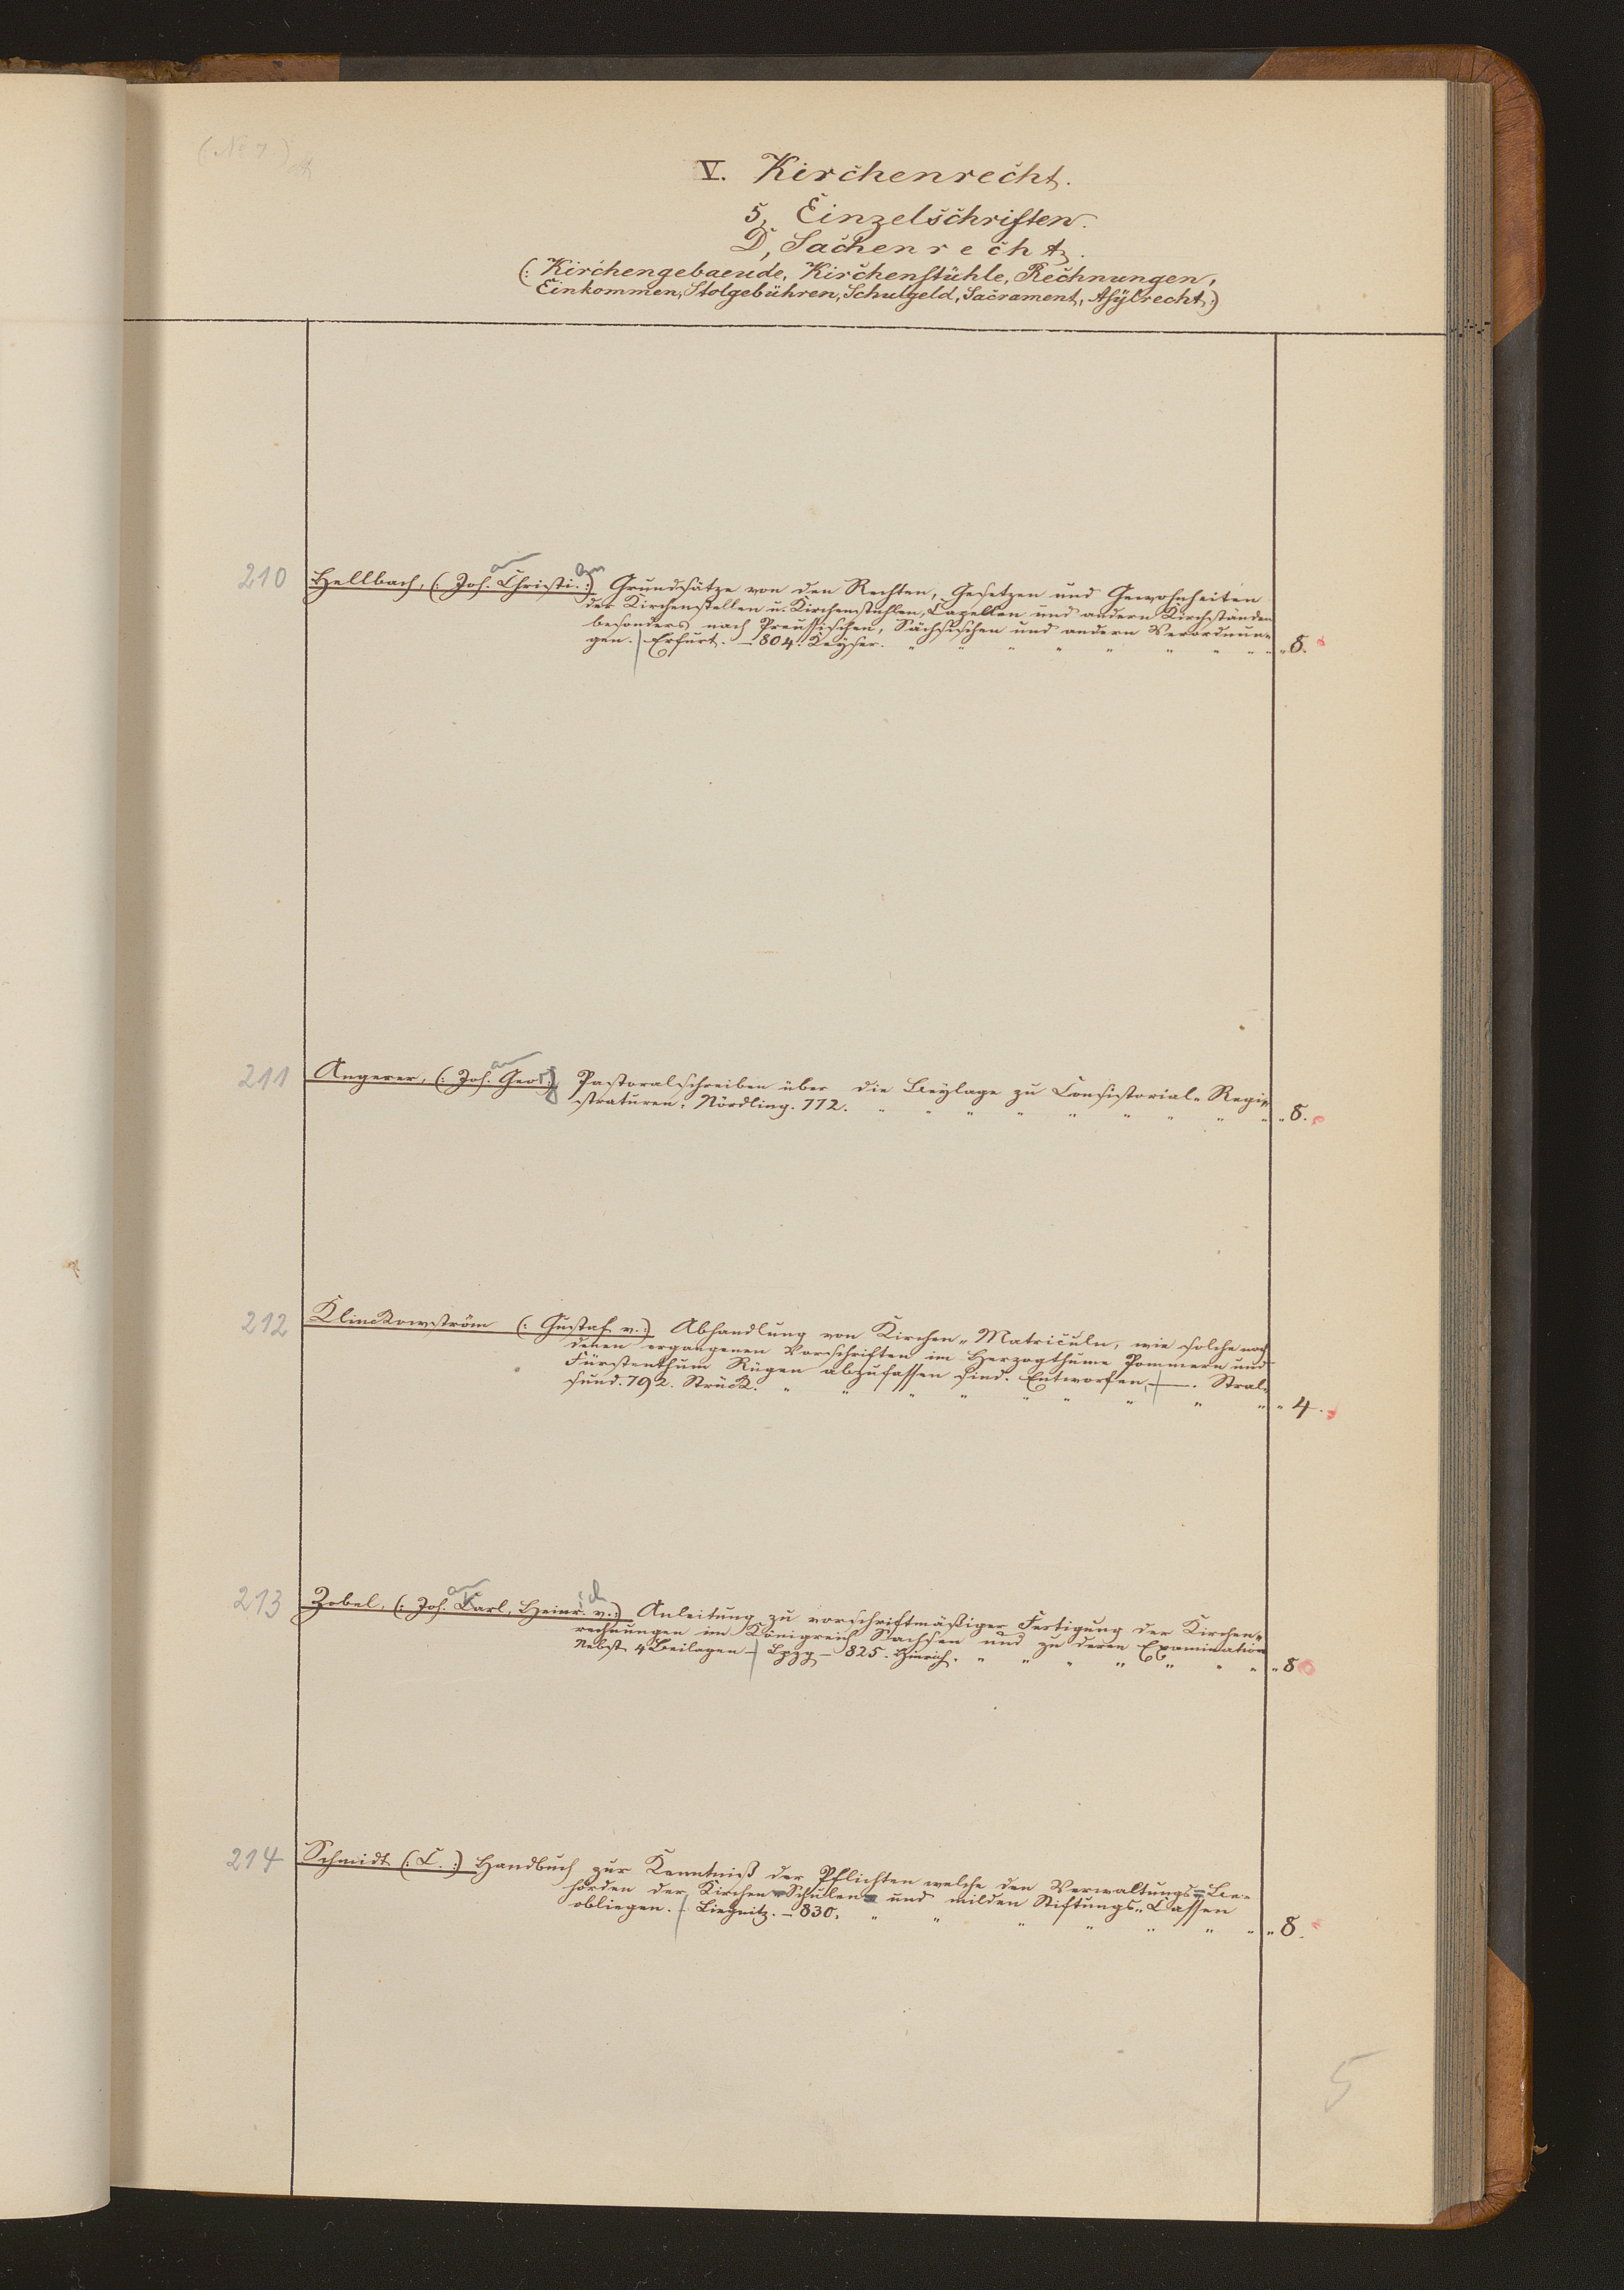 (No 7.)
V. Kirchenrecht.
5, Einzelschriften.
D, Sachenrecht.
(: Kirchengebaeude, Kirchenstühle, Rechnungen,
Einkommen, Stolgebühren, Schulgeld, Sacrament, Asÿlrecht :)
210 Hellbach, (: Joh. Christi. :) Grundsätze von den Rechten, Gesetzen und Gewohnheiten
der Kirchenstellen u. Kirchenstühlen, Capellen und andern Kirchständen
besonders nach Preussischen, Sächsischen und andern Verordnun-
gen. Erfurt. - 804. Keÿser. " " " " " " " " " 8.
211 Angerer, (: Joh. Georg :) Pastoralschreiben über die Beÿlage zu Consistorial-Regi-
straturen. Nördling. 772. " " " " " " " " " 8.
212 Klinckowström (: Gustaf v. :) Abhandlung von Kirchen-Matriculn, wie solche nach
denen ergangenen Vorschriften im Herzogthume Pommern und
Fürstenthum Rügen abzufassen sind. Entworfen, —. Stral-
sund. 792. Struck. " " " " " " " " " 4.
213 Zobel, (: Joh. Carl, Heinr. v. :) Anleitung zu vorschriftmäßiger Fertigung der Kirchen-
rechnungen im Königreich Sachsen und zu deren Examination
Nebst 4 Beilagen - Lpzg - 825. Hinrich. " " " " " " " 8
214 Schmidt (: C. :) Handbuch zur Kenntniß der Pflichten welche den Verwaltungs-Be-
hörden der Kirchen- Schulen- und milden Stiftungs-Cassen
obliegen. - Liegnitz. - 830. " " " " " " " " 8.
5